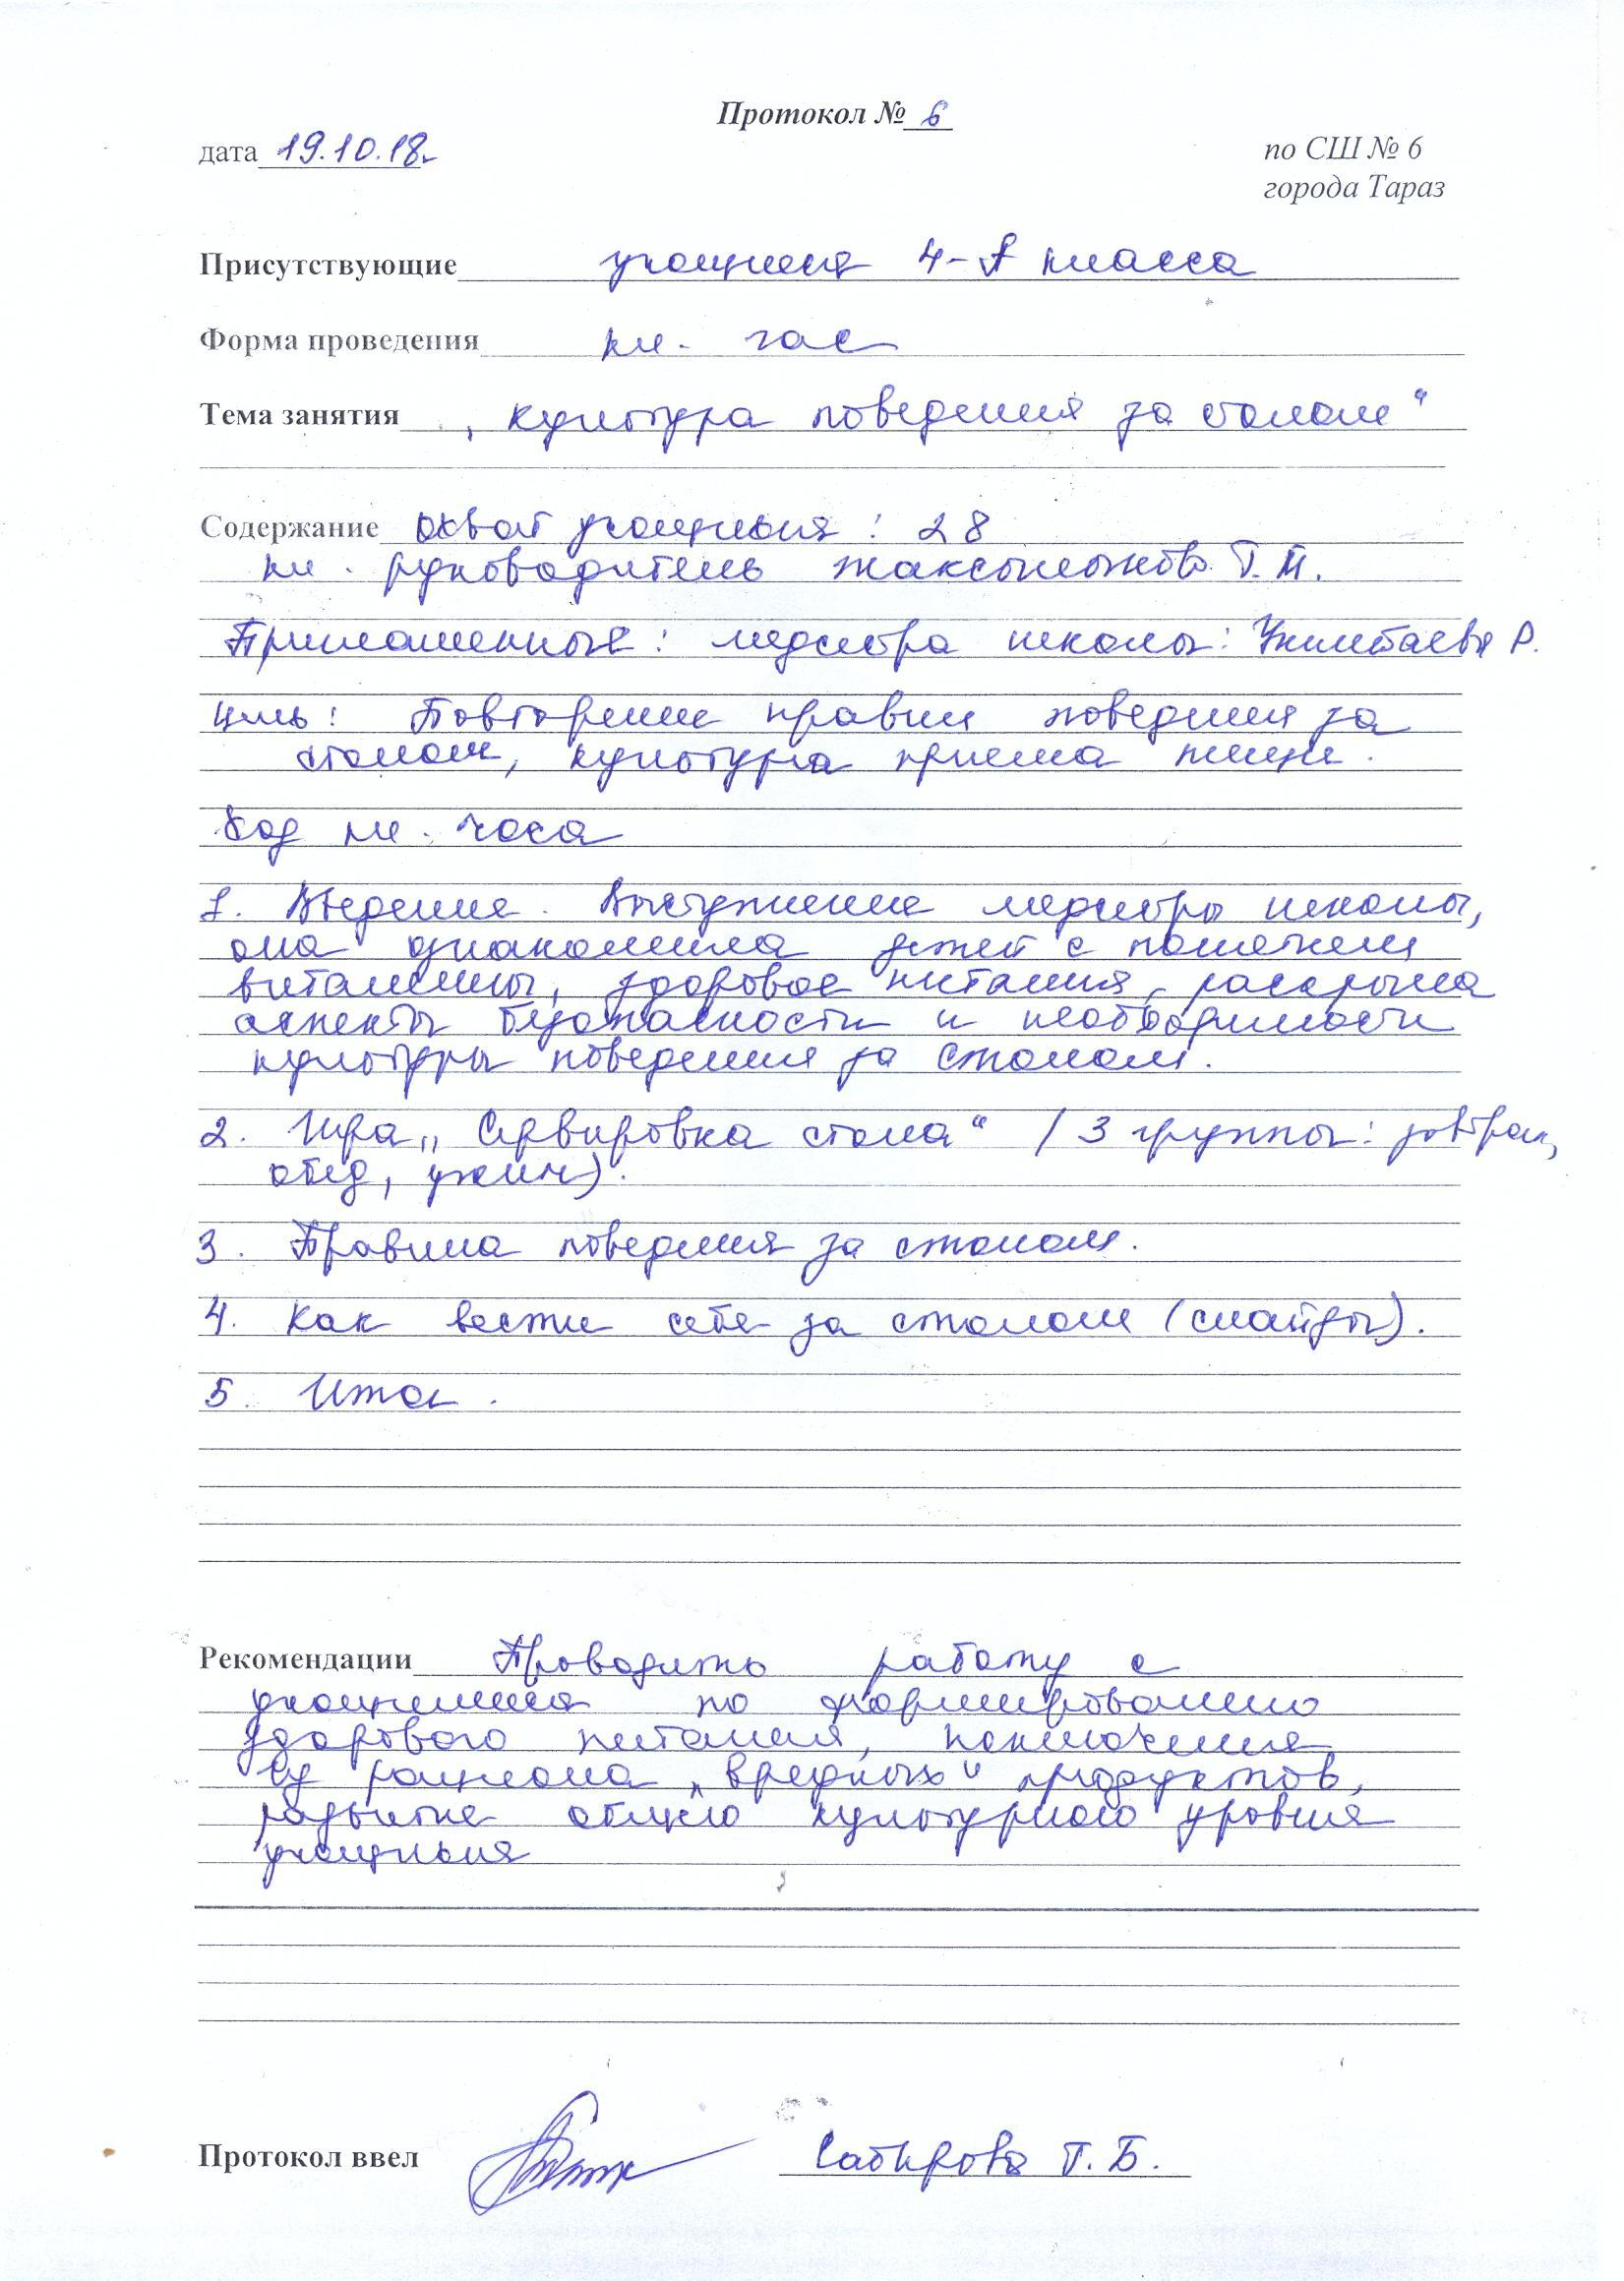 Протокол № 6
дата 19.10.18г.
по СШ № 6
города Тараз
Присутствующие учащиеся 4-А класса
Форма проведения кл. час
Тема занятия „Культура поведения за столом“
Содержание охват учащихся: 28
кл. руководитель Жаксылыкова Г.М.
Приглашенные: медсестра школы: Р.
Цель: Повторение правил поведения за
столом, культура приема пищи.
Ход кл. часа
1. Введение. Выступление медсестры школы,
она ознакомила детей с понятием
витамины, здоровое питания, раскрыла
аспекты безопасности и необходимости
культуры поведения за столом.
2. Игра „Сервировка стола“ (3 группы: завтрак,
обед, ужин).
3. Правила поведения за столом.
4. Как вести себя за столом (слайды).
5. Итог.
Рекомендации Проводить работу с
учащимися по формированию
здорового питания,
из рациона „вредных“ продуктов,
развитие общего культурного уровня
учащихся
Протокол ввел Сабирова Г.Б.